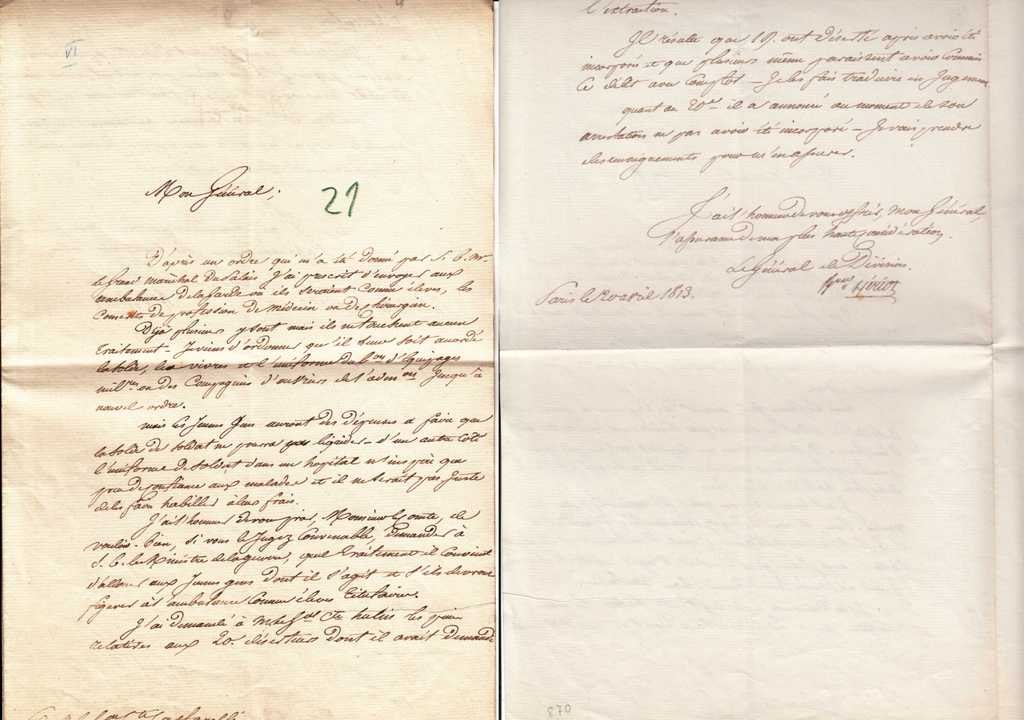 VI
Mon Général,
21
D'après un ordre qui m'a été donné par S. E. Mr
le grand maréchal du Palais J'ai prescrit d'envoyer aux
ambulances de la Garde où ils seraient comme élèves, les
Conscrits de profession de médecin ou de chirurgien.
Déjà plusieurs y sont mais ils ne touchent aucun
traitement – Je viens d'ordonner qu'il leur soit accordé
la solde, les vivres et l'uniforme du d'Equipages
milres ou des Compagnies d'ouvriers de l'adon Jusqu'à
nouvel ordre.
mais les Jeunes Gens auront des dépenses à faire que
la solde de soldat ne pourra pas – d'un autre côté
l'uniforme de soldat dans un hopital n'inspire que
peu de confiance aux malades et il ne serait pas Juste
de les faire habiller à leurs frais.
J'ai l'honneur de vous prier, Monsieur le Comte, de
vouloir bien, si vous le Jugez Convenable, demander à
S. E. le Ministre de la guerre, quel traitement il convient
d'allouer aux Jeunes gens dont il s'agit et s'ils devront
figurer à l'ambulance comme élèves titulaires.
J'ai demandé à Mr le Gal Cte hulin les pièces
relatives aux 20. déserteurs dont il avait demandé
l'extraction.
Il résulte que 19. ont déserté après avoir été
incorporés et que plusieurs même paraissent avoir commis
ce délit avec Complot – Je les fais traduire en Jugement
quant au 20me il a annoncé au moment de son
arrestation ne pas avoir été incorporé – Je vais prendre
des renseignements pour m'en assurer.
J'ai l'honneur de vous offrir, mon Général
l'assurance de ma plus haute considération,
Le Général de Division.
Paris le 20 avril 1813.
870